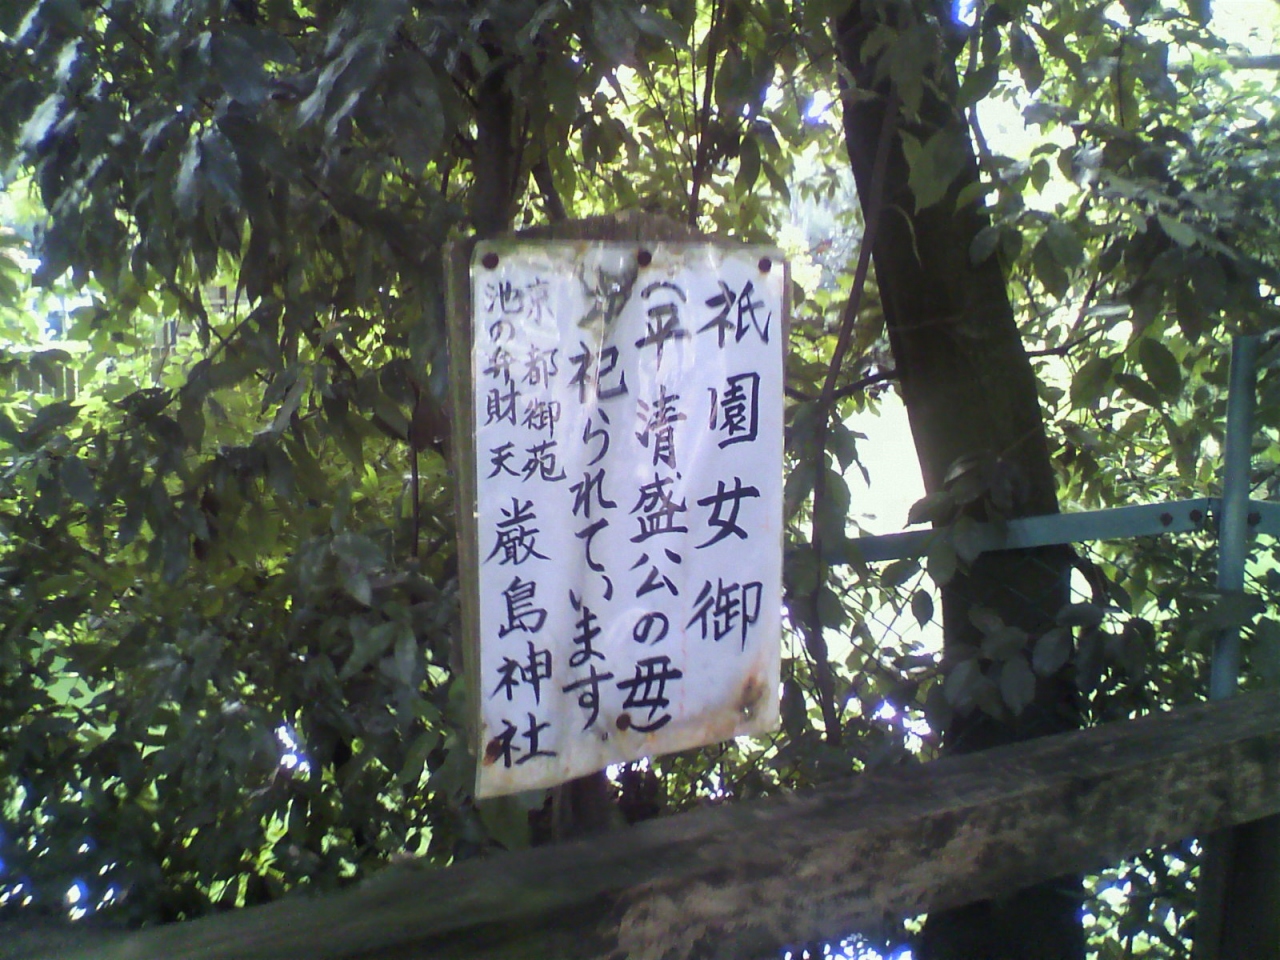 祇園女御
（平清盛公の母）
祀られています。
京都御苑
池の弁財天
厳島神社